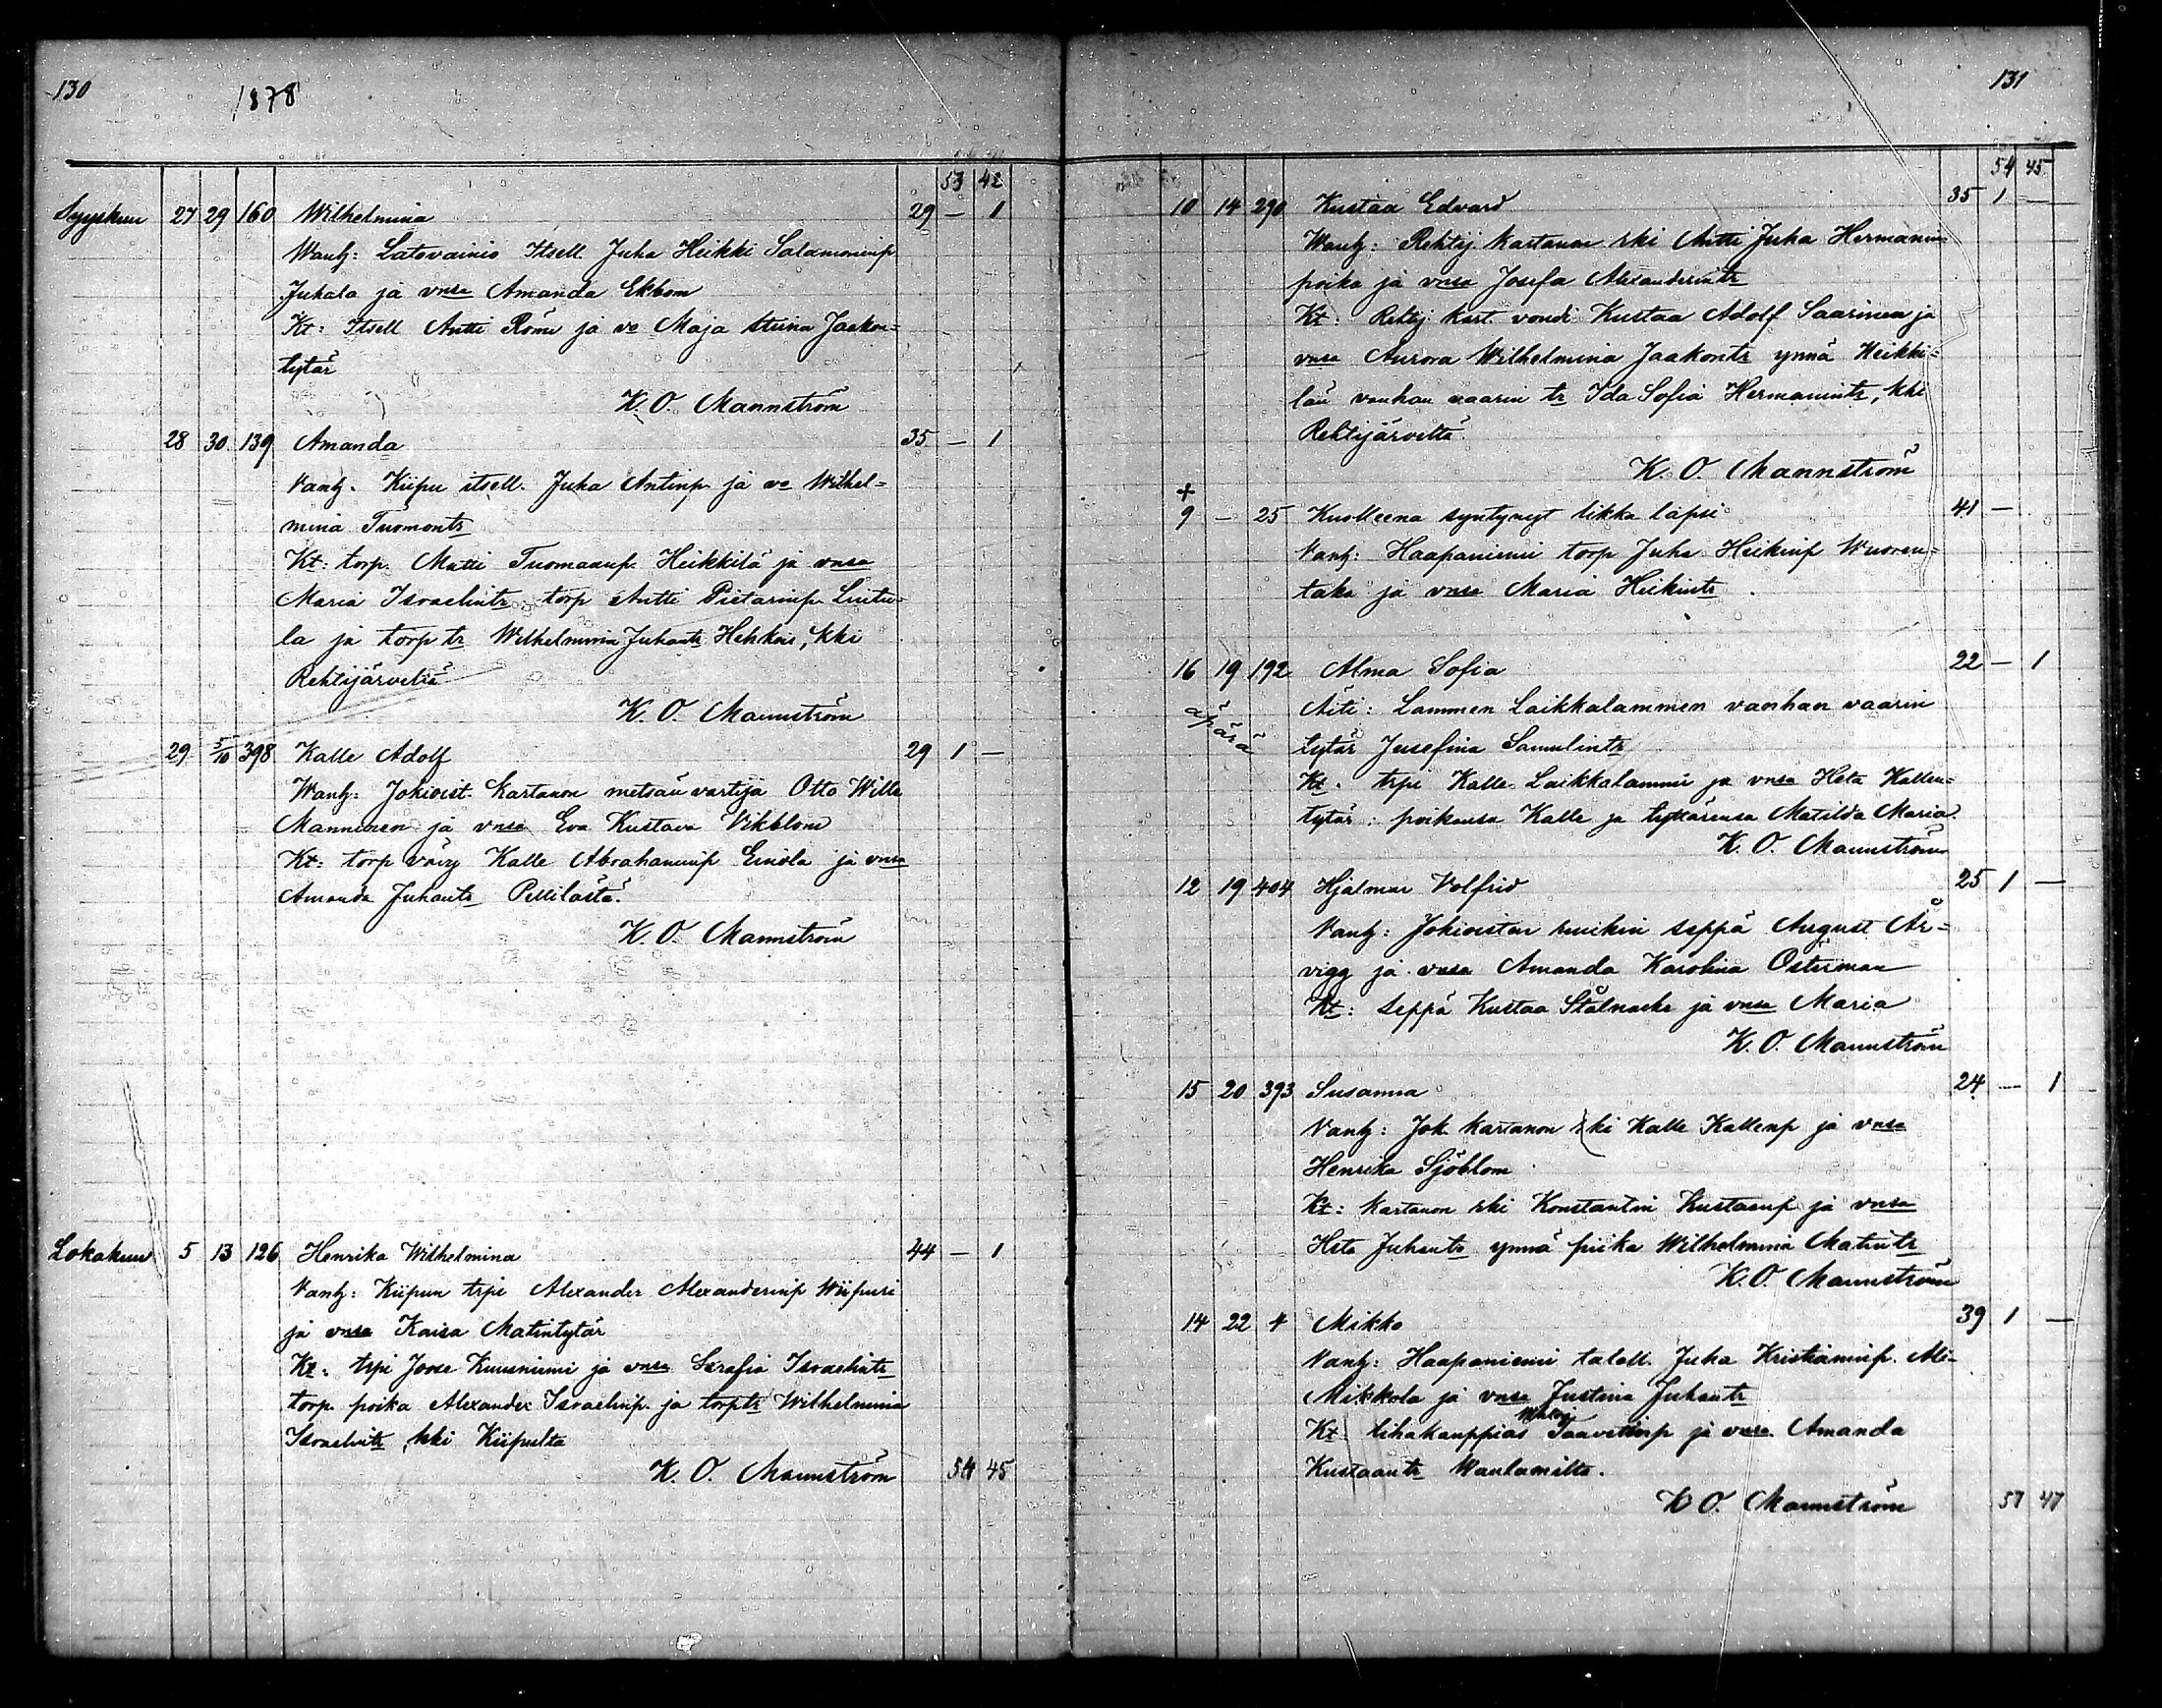 130
1878
53 42
Syyskuu 27 29 160 Wilhelmina 29 — 1
Wanh: Latovainio Itsell. Juha Heikki Salamoninp
Juhala ja vnsa Amanda Ekbom
Kt: Itsell Antti Römi ja vo Maja Stiina Jaakon=
tytär
K. O. Mannström
28 30 139 Amanda 35 — 1
Vanh. Kiipu itsell. Juha Antinp ja vo Wilhel=
mina Tuomontr
Kt: torp. Matti Tuomaanp. Heikkilä ja vnsa
Maria Israelintr torp Antti Pietarinp. Luitu-
la ja torp tr Wilhelmina Juhantr Hehkus, kki
Rehtijärveltä
K. O. Mannström
29 5/10 398 Kalle Adolf 29 1 —
Wanh: Jokioist. Kartanon metsänvartija Otto Wille
Manninen ja vnsa Eva Kustava Vikblom
Kt: torp vävy Kalle Abrahaminp Einola ja vnsa
Amanda Juhantr Pellilästä.
K. O. Mannström
Lokakuu 5 13 126 Henrika Wilhelmina 44 — 1
Vanh: Kiipun trpi Alexander Alexanderinp Wiipuri
ja vnsa Kaisa Matintytär
Kt: trpi Joose Kuusniemi ja vnsa Serafia Israelintr
torp. poika Alexander Israelinp. ja torptr Wilhelmina
Israelintr, kki Kiipulta
K. O. Mannström 54 45
131
54 45
10 14 290 Kustaa Edvard 35 1 —
Wanh: Rehtij. Kartanon rki Antti Juha Hermanin
poika ja vnsa Josefa Alexanderintr
Kt: Rehtij. Kart. vouti Kustaa Adolf Saarinen ja
vnsa Aurora Wilhelmina Jaakontr ynnä Heikki=
län vanhan vaarin tr Ida Sofia Hermanintr, kki
Rehtijärveltä.
K. O. Mannström
+
9 — 25 Kuolleena syntynyt likka lapsi 41 —
Vanh: Haapaniemi torp Juha Heikinp Wuoren=
taka ja vnsa Maria Heikintr
16 19 192 Alma Sofia 22 — 1
äpärä
Äiti: Lammen Laikkalammen vanhan vaarin
tytär Jusefina Samulintr
Kt. trpi Kalle Laikkalammi ja vnsa Heta Kallen=
tytär: poikansa Kalle ja tyttärensä Matilda Maria
K. O. Mannström
12 19 404 Hjalmar Volfrid 25 1 —
Vanh: Jokioisten ruukin seppä August År=
vigg ja vnsa Amanda Karolina Österman
Kt: seppä Kustaa Stålnacke ja vnsa Maria
K. O. Mannström
15 20 393 Susanna 24 — 1
Vanh: Jok kartanon rki Kalle Kallenp ja vnsa
Henrika Sjöblom
Kt: kartanon rki Konstantin Kustaanp ja vnsa
Heta Juhantr ynnä piika Wilhelmina Matintr
K. O. Mannström
14 22 4 Mikko 39 1 —
Vanh: Haapaniemi taloll. Juha Kristianinp. Mi-
Mikkola ja vnsa Justina Juhantr
Kt: lihakauppias Taavettinp ja vnsa Amanda
Kustaantr Maulamilta.
K O. Mannström 57 47